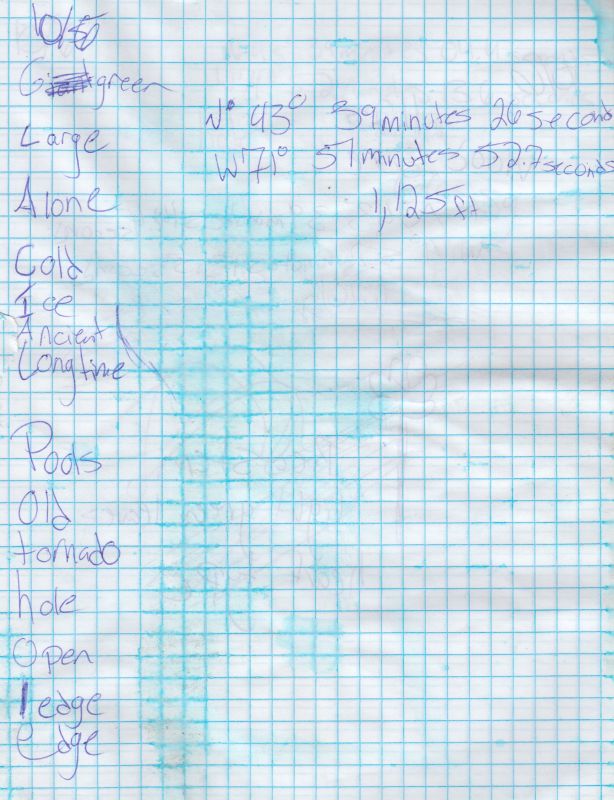 10/50
G green
Large
Alone
Cold
Ice
Ancient
Longtime
Pools
Old
tornado
hole
Open
ledge
edge
N° 43° 39 minutes 26 seconds
W 71° 57 minutes 52.7 seconds
1,125 ft